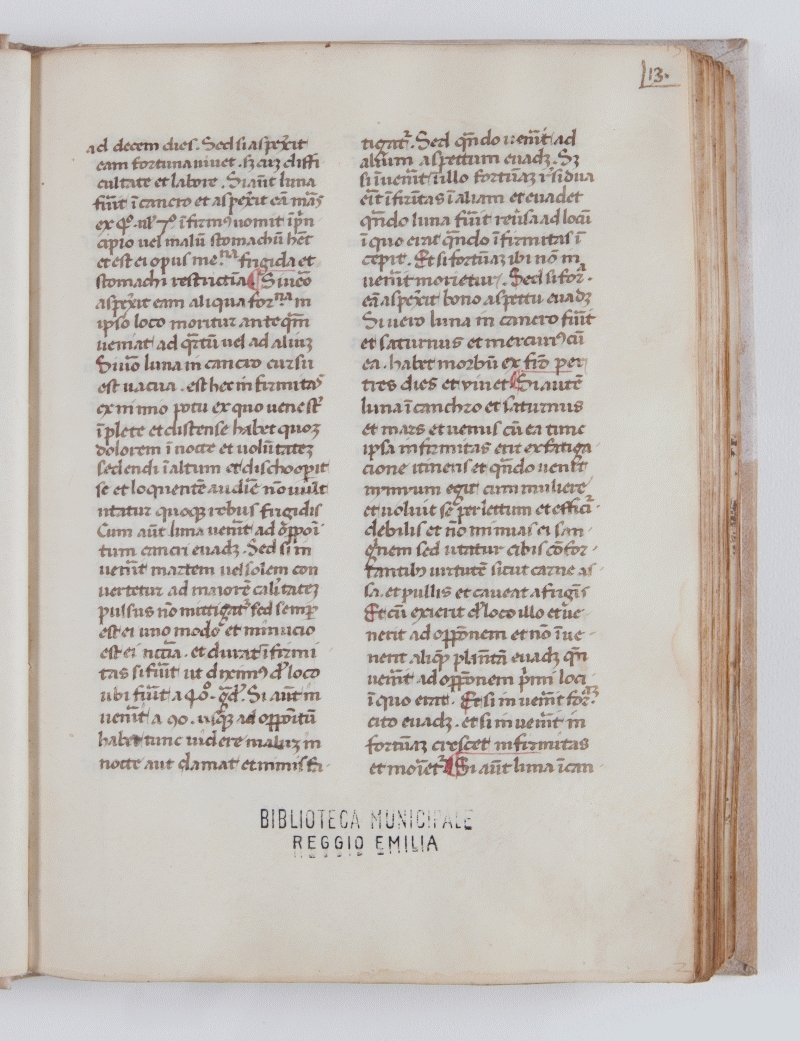 13.
ad decem dies. Sed si aspexit
eam fortuna uiuet. sz cuz diffi
cultate et labore. Si aut̄ luna
fūit ī cancro et aspexit eā mās
īfirmus uomit īpn̄
cipio uel malū stomachū hēt
et est ei opus me.na frigida et
stomachi restrictiua Si uēo
aspexit eam aliqua for.na in
ipso loco moritur anteqm̄
ueniat ad qrtū uel ad aliuz
Si uō luna in cancro cursu
est uacua. est hec infirmitas
ex nimio potu ex quo uene st̄
īplete et distense habet quoz
dolorem ī nocte et uolūtatez
sedendi ī altum et dischoopit
se et loquentē audiē nō uult
utatur quoqz rebus frigidis
Cum aut̄ luna uenit ad oppoi
tum cancri euadz. Sed si in
uenit martem uel solem con
uertetur ad maiorē calitatez
pulsus nō mittigat sed semp
est ei uno modo et minucio
est ei et durat īfirmi
tas si fūit ut diximus de loco
ubi fūit a 40. gd. Si aut̄ in
uenit a 90. usqz ad oppoitū
habet tunc uidere maluz in
nocte aut clamat et
tigat. Sed qn̄do uenit ad
alium aspectum euadz. Sz
si īuenit ī illo fortunaz
eit īfiritas ī aliam et euadet
qn̄do luna fūit reuersa ad locū
ī quo erat qn̄do īfirmitas ī
cepit. Et si fortunaz ibi nō in
uenit morietur. Sed si for.
eā aspexit bono aspectu euadz
Si uero luna in cancro fūit
et saturnus et mercurius cū
ea. habet morbū ex frd per
tres dies et uiuet Si autē
luna ī canchro et saturnus
et mars et uenus cū ea tunc
ipsa infirmitas erit ex fatiga
cione itineris et qn̄do uenit
nimium egit cum muliere
et uoluit se per lectum et effici
debilis et nō minuas ei san
gnem sed utatur cibis cōfor
tantibus uirtutē sicut carne as
sa. et pullis et caueat a frigis
Et cū exierit de loco illo et ue
nerit ad opponem et nō īue
nerit aliqz planetā euadz qn̄
uenit ad opponem primi loci
ī quo erat. Et si inuenit for.
cito euadz. et si inuenit in
fortunaz crescet infirmitas
et moriet Si aut̄ luna ī can
BIBLIOTECA MUNICIPALE
REGGIO EMILIA